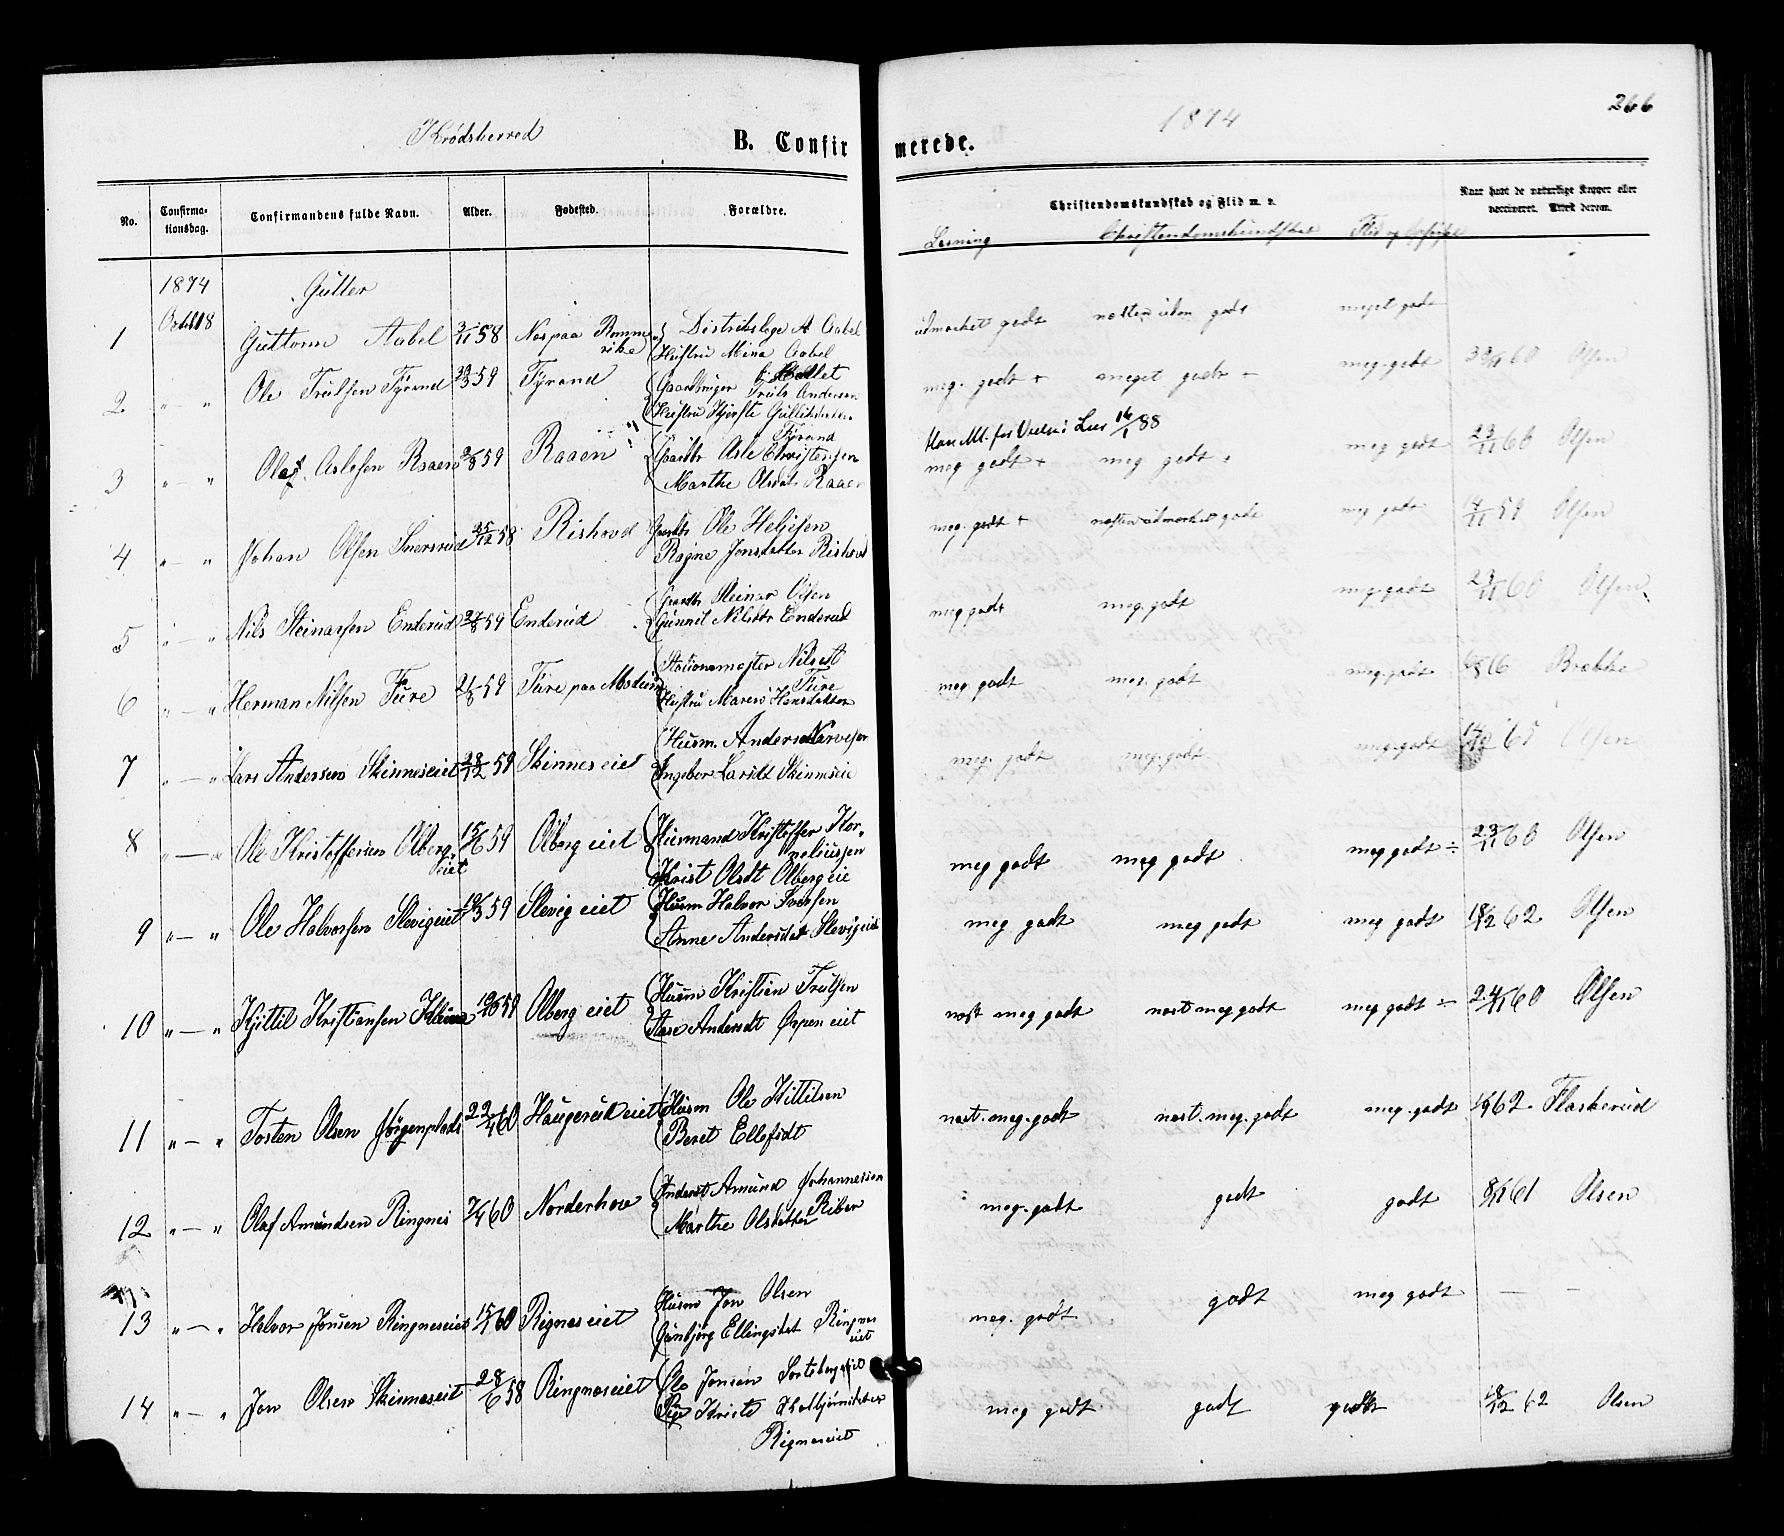 Krødsherred
B. Confirmerede.
1874
266
No.
Confirmationsdag.
Confirmandens fulde Navn.
Alder.
Fødested.
Forældre.
Christendomskundskab og Flid m. v.
Naar havt de naturlige Kopper eller vaccineret. Attest derom.
Lesning
Christendomskundskab
Flid og
1874
Gutter
1 Guttorm Aabel 58 Nes paa Romme rike Distriktslege A Aabel
Hustru Mina Aabel
udmerket godt nesten uden godt meget godt
2 " — " Ole Trulsen Tyrand 59 Tyrand
Gaardbruger Truls Andersen
Hustru Kjersti Gulliksdatter
meg. godt + meget godt meg. godt 60 Olsen
Tyrand
3 " — " Olaf Aslesen Raaen 59 Raaen Gaardbr Asle Christensen
Marthe Olsdat Raaen
16/1 88
meg godt + meg godt meg godt 23/11 60 Olsen
4 " — " Johan Olsen Snersrud 25/12 58 Rishovd Gaardbr Ole Helgesen
Ragne Jonsdatter Rishovd
meg. godt + nesten udmerket godt meg godt 14/11 59 Olsen
5 " — " Nils Steinarsen Enderud 59 Enderud Gaardbr Steinar Olsen
Gunnil Nilsdtr Enderud
meg godt meg. godt meg. godt 23/11 60 Olsen
6 " — " Herman Nilsen Fure 21/8 59 Fure paa Modum Stationsmester Nils
Fure
Hustru Maren Hansdatter
meg. godt meg. godt meg. godt Brekke
7 " — " Lars Andersen Skinneseiet 28/12 59 Skinneseiet Husm. Anders Narvesen
Ingebor Larsdt Skinneseie
meg. godt meg. godt meg. godt Olsen
8 " — " Ole Kristoffersen Olberg
eiet
15/6 59 Olberg eiet Husmand Kristoffer Kor-
neliussen
Krist Olsdt Olberg eie
meg godt meg godt meg godt ÷ 23/11 60 Olsen
9 " — " Ole Halvorsen Slevigeiet 59 Slevig eiet Husm Halvor Iversen
Anne Andersdat Slevigeie
meg. godt meg godt meg godt 18/12 62 Olsen
10 " — " Kjittil Kristiansen 59 Olberg eiet Husm Kristian Trulsen
Aase Andersdt Ospen eiet
nest meg godt nest meg godt meg godt ÷ 24/11 60 Olsen
11 " — " Tosten Olsen Jørgenplads 60 Haugerud eiet Husm Ole Kittilsen
Beret Ellefsdt
nest. meg. godt nest. meg. godt meg. godt 62 Flaskerud
12 " — " Olaf Amundsen Ringnes 7/4 60 Norderhov Inderst Amund Johannessen
Riber
Marthe Olsdatter
meg. godt godt godt 61 Olsen
13 " — " Halvor Jonsen Ringneseiet 60 Rigneseiet Husm Jon Olsen
Gunbjørg Ellingsdat Ringnes
eiet
meg. godt godt meg godt — —
14 " — " Jon Olsen Skinneseiet 28/6 58 Ringneseiet Ole Jonsen
Pige Kristi
Rigneseiet
meg godt godt godt 18/12 62 Olsen